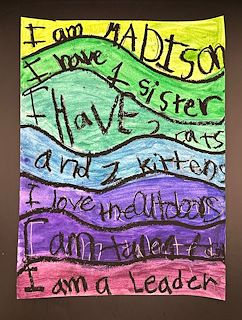 I am MADISON
I have 1 sister
I HAVE 2 rats
and 2 kittens
I love the outdoors
I am talented
I am a Leader